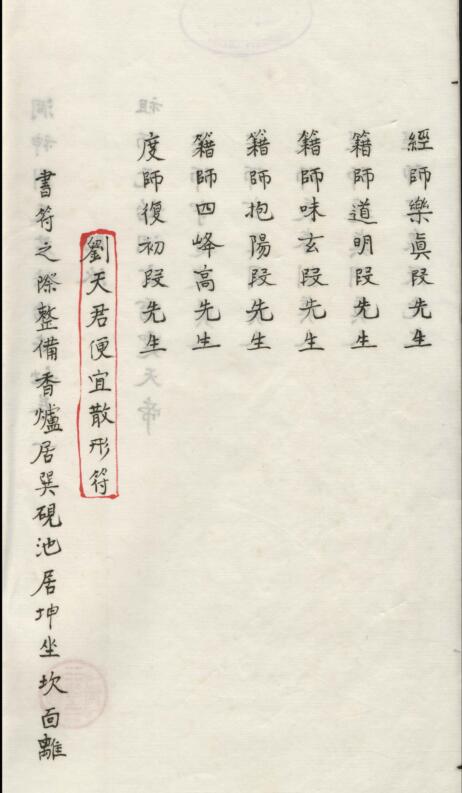 經師樂眞段先生
籍師道明段先生
籍師味玄段先生
籍師抱陽段先生
籍師四峰高先生
度師復初段先生
劉天君便宜散形符
書符之際整備香爐居巽硯池居坤坐坎面離